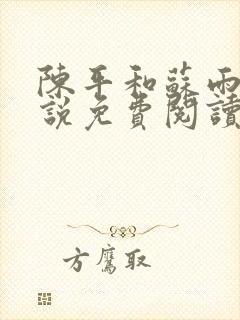 陳平和蘇雨
說免費閱讀
方鷹取